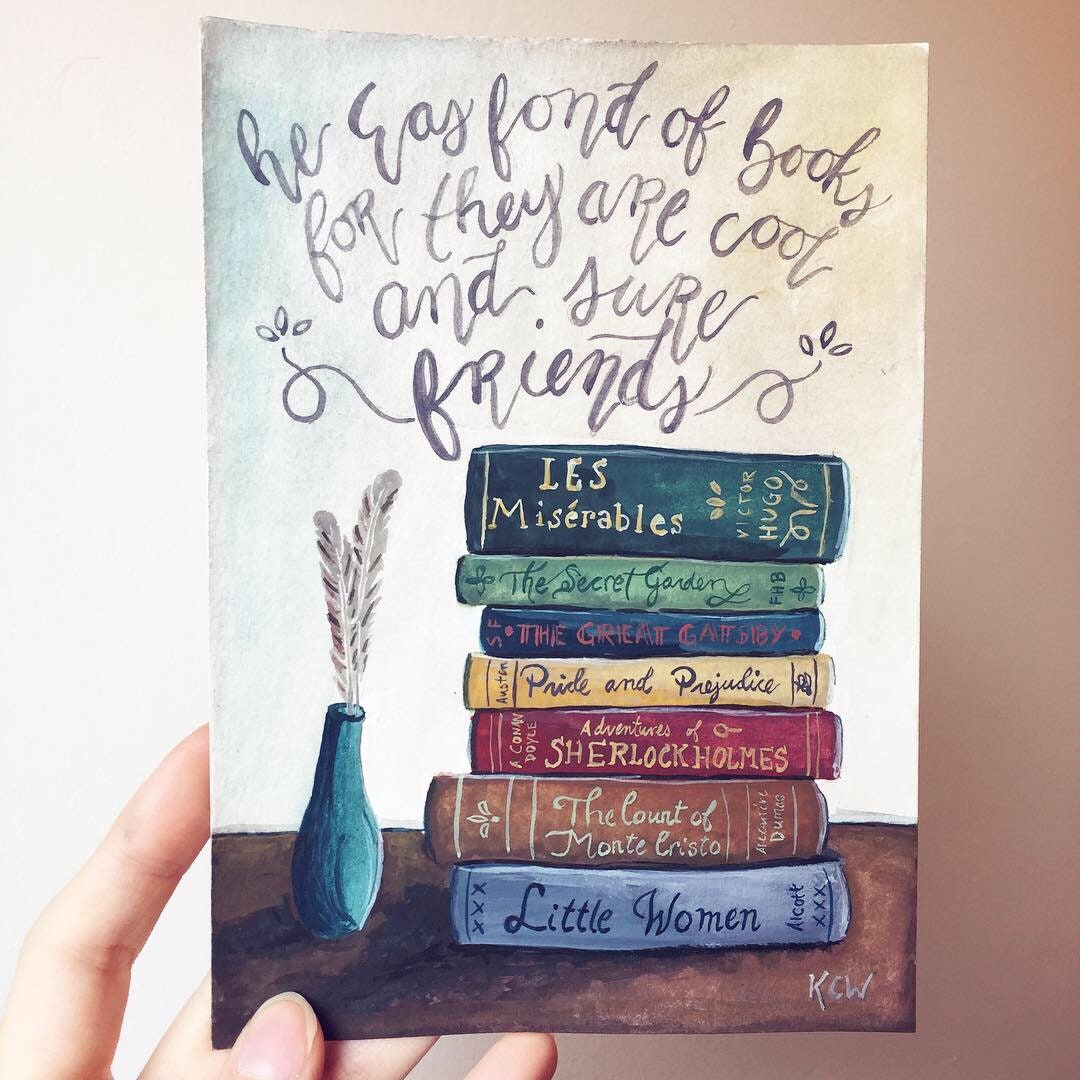 he was fond of Books
for they are cool
and sure
friends
LES
Misérables
VICTOR
HUGO
The Secret Garden
FHB
SF
• THE GREAT GATSBY •
Austen
Pride and Prejudice
A CONAN
DOYLE
Adventures of
SHERLOCK HOLMES
The Count of
Monte Cristo
Alexandre
Dumas
xxx
Little Women
Alcott
xxx
KCW